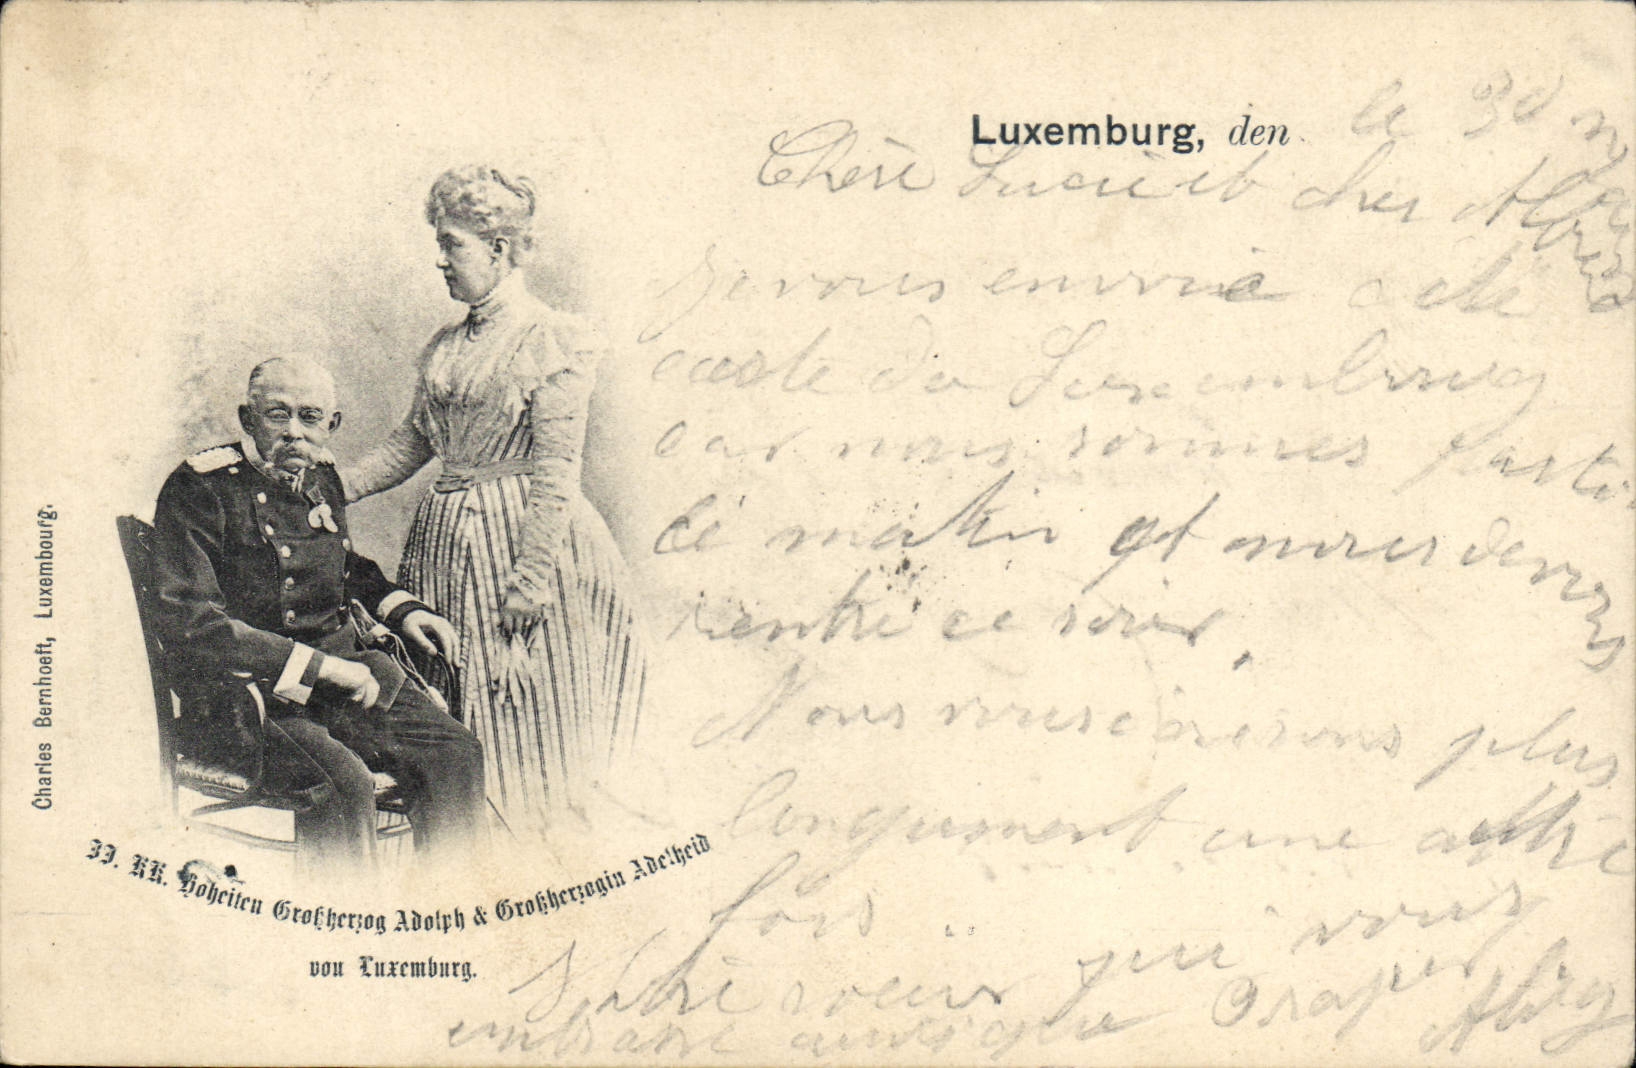 Luxemburg, den
le 30
Chère Lucie et cher
je vous envoie cete
carte de Luxembourg
car nous sommes
ce matin et nous
rentre ce soir,
Nous vous plus
longuement une
fois
Votre soeur qui vous
embrasse ainsi que
JJ. KK. Hoheiten Großherzog Adolph & Großherzogin Adelheid
von Luxemburg.
Charles Bernhoeft, Luxembourg.